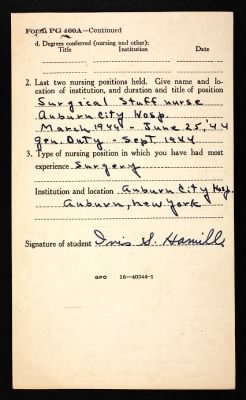 Form PG 500A—Continued
d. Degrees conferred (nursing and other):
Title Institution Date
2. Last two nursing positions held. Give name and lo-
cation of institution, and duration and title of position
Surgical Staff nurse
Auburn City Hosp.
March 1944 - June 25, '44
Gen. Duty - Sept 1944
3. Type of nursing position in which you have had most
experience Surgery
Institution and location Auburn City Hosp.
Auburn, New York
Signature of student Iris S. Hamill
GPO 16—40344-1